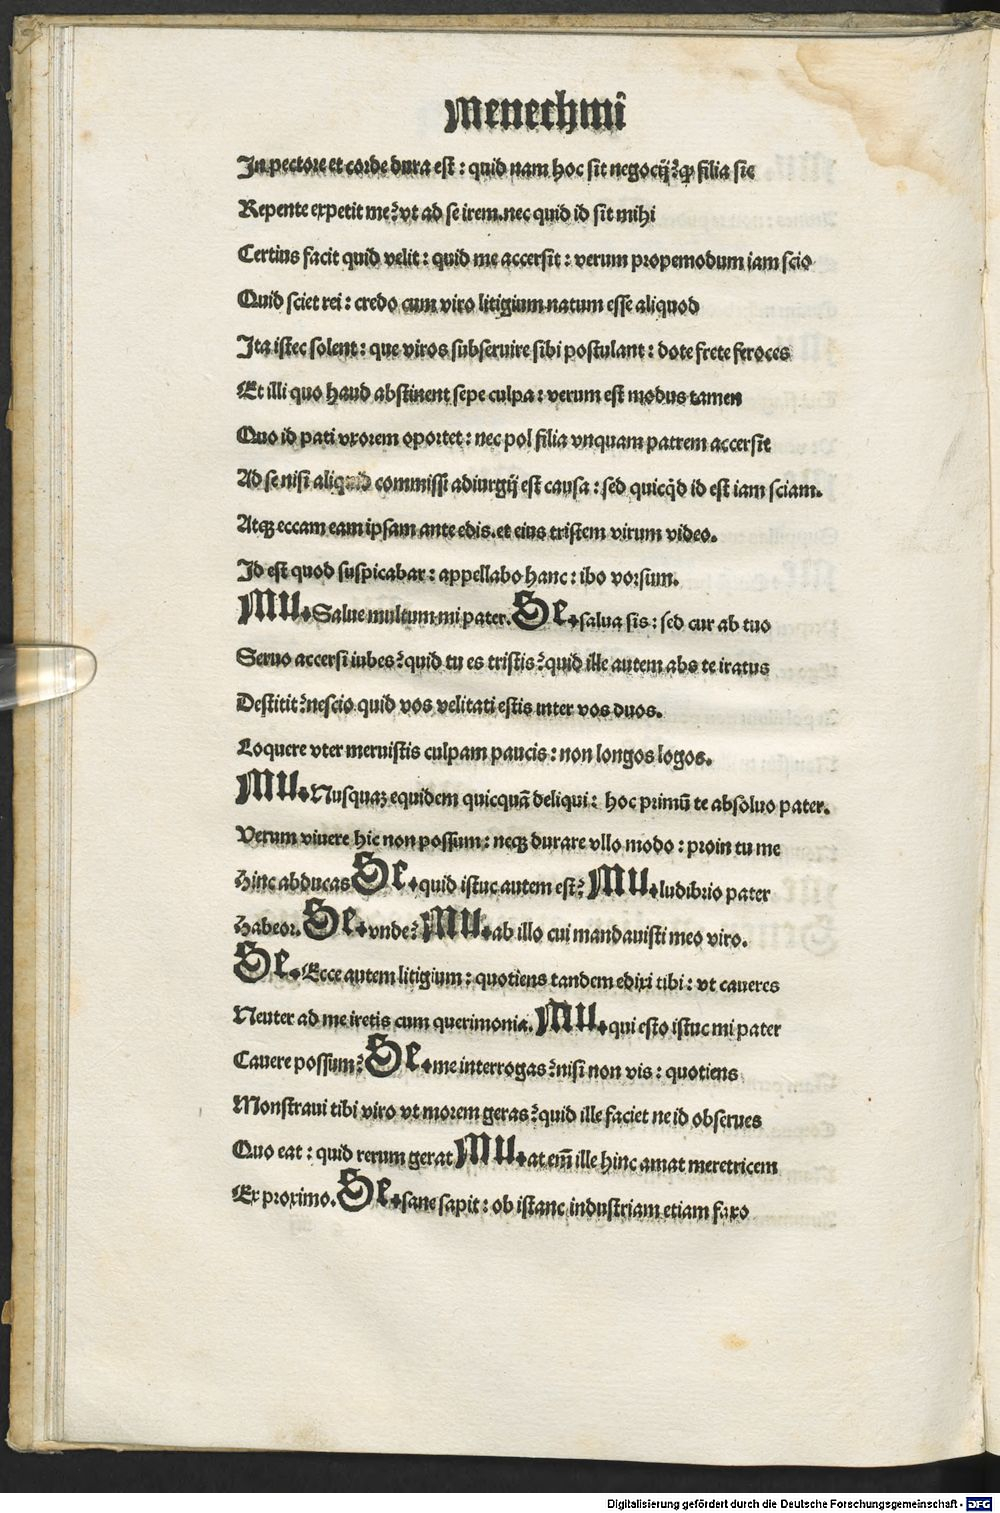 Menechmū
In pectore et corde dura est : quid nam hoc sit negocij? ꝙ filia sic
Repente expetit me? vt ad se irem. nec quid id sit mihi
Certius facit quid velit : quid me accersit : verum propemodum iam scio
Quid sciet rei : credo cum viro litigium natum esse aliquod
Ita istec solent : que viros subseruire sibi postulant : dote frete feroces
Et illi quo haud abstinent sepe culpa : verum est modus tamen
Quo id pati vxorem oportet : nec pol filia vnquam patrem accersit
Ad se nisi aliquid commissi adiurgij est causa : sed quicq̇d id est iam sciam.
Atqȝ eccam eam ipsam ante edis. et eius tristem virum video.
Id est quod suspicabar : appellabo hanc : ibo vorsum.
MU. Salue multum mi pater. Se. salua sis : sed cur ab tuo
Seruo accersi iubes? quid tu es tristis? quid ille autem abs te iratus
Destitit? nescio quid vos velitati estis inter vos duos.
Loquere vter meruistis culpam paucis : non longos logos.
MU. Nusquaȝ equidem quicquā deliqui : hoc primū te absoluo pater.
Verum viuere hic non possum : neqȝ durare vllo modo : proin tu me
Hinc abducas Se. quid istuc autem est? MU. ludibrio pater
Habeor. Se. vnde? MU. ab illo cui mandauisti meo viro.
Se. Ecce autem litigium : quotiens tandem edixi tibi : vt caueres
Neuter ad me iretis cum querimonia. MU. qui esto istuc mi pater
Cauere possum? Se. me interrogas? nisi non vis : quotiens
Monstraui tibi viro vt morem geras? quid ille faciet ne id obserues
Quo eat : quid rerum gerat MU. at em̄ ille hinc amat meretricem
Ex proximo. Se. sane sapit : ob istanc industriam etiam faxo
Digitalisierung gefördert durch die Deutsche Forschungsgemeinschaft - DFG